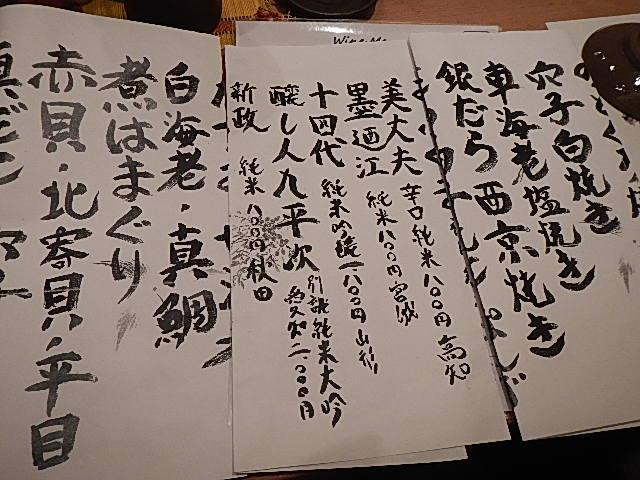 穴子白焼き
車海老塩焼き
銀だら西京焼き
美丈夫 辛口純米八〇〇円 高知
墨廼江 純米八〇〇円 宮城
十四代 純米吟醸一、八〇〇円 山形
醸し人九平次 別誂純米大吟 愛知二、〇〇〇円
新政 純米八〇〇円 秋田
白海老・真鯛
煮はまぐり
赤貝・北寄貝・平目